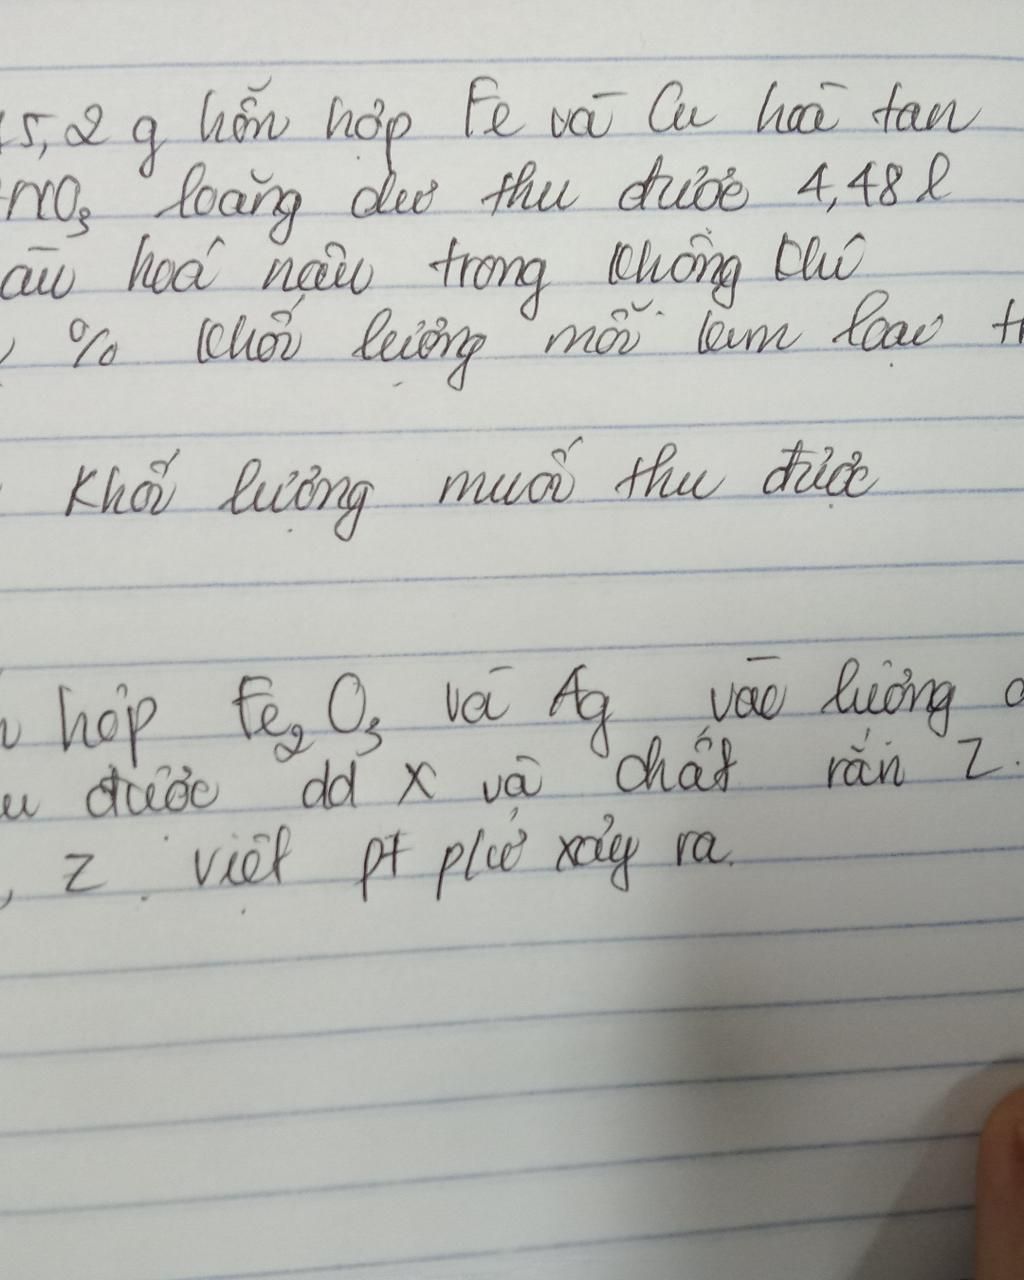 15,2 g hỗn hợp Fe và Cu hoà tan
HNO₃ loãng dư thu được 4,48 l
hoá nâu trong không khí
% khối lượng mỗi kim loại
Khối lượng muối thu được
hợp Fe₂O₃ và Ag vào lượng
được dd X và chất rắn Z.
, Z. viết pt pứ xảy ra.